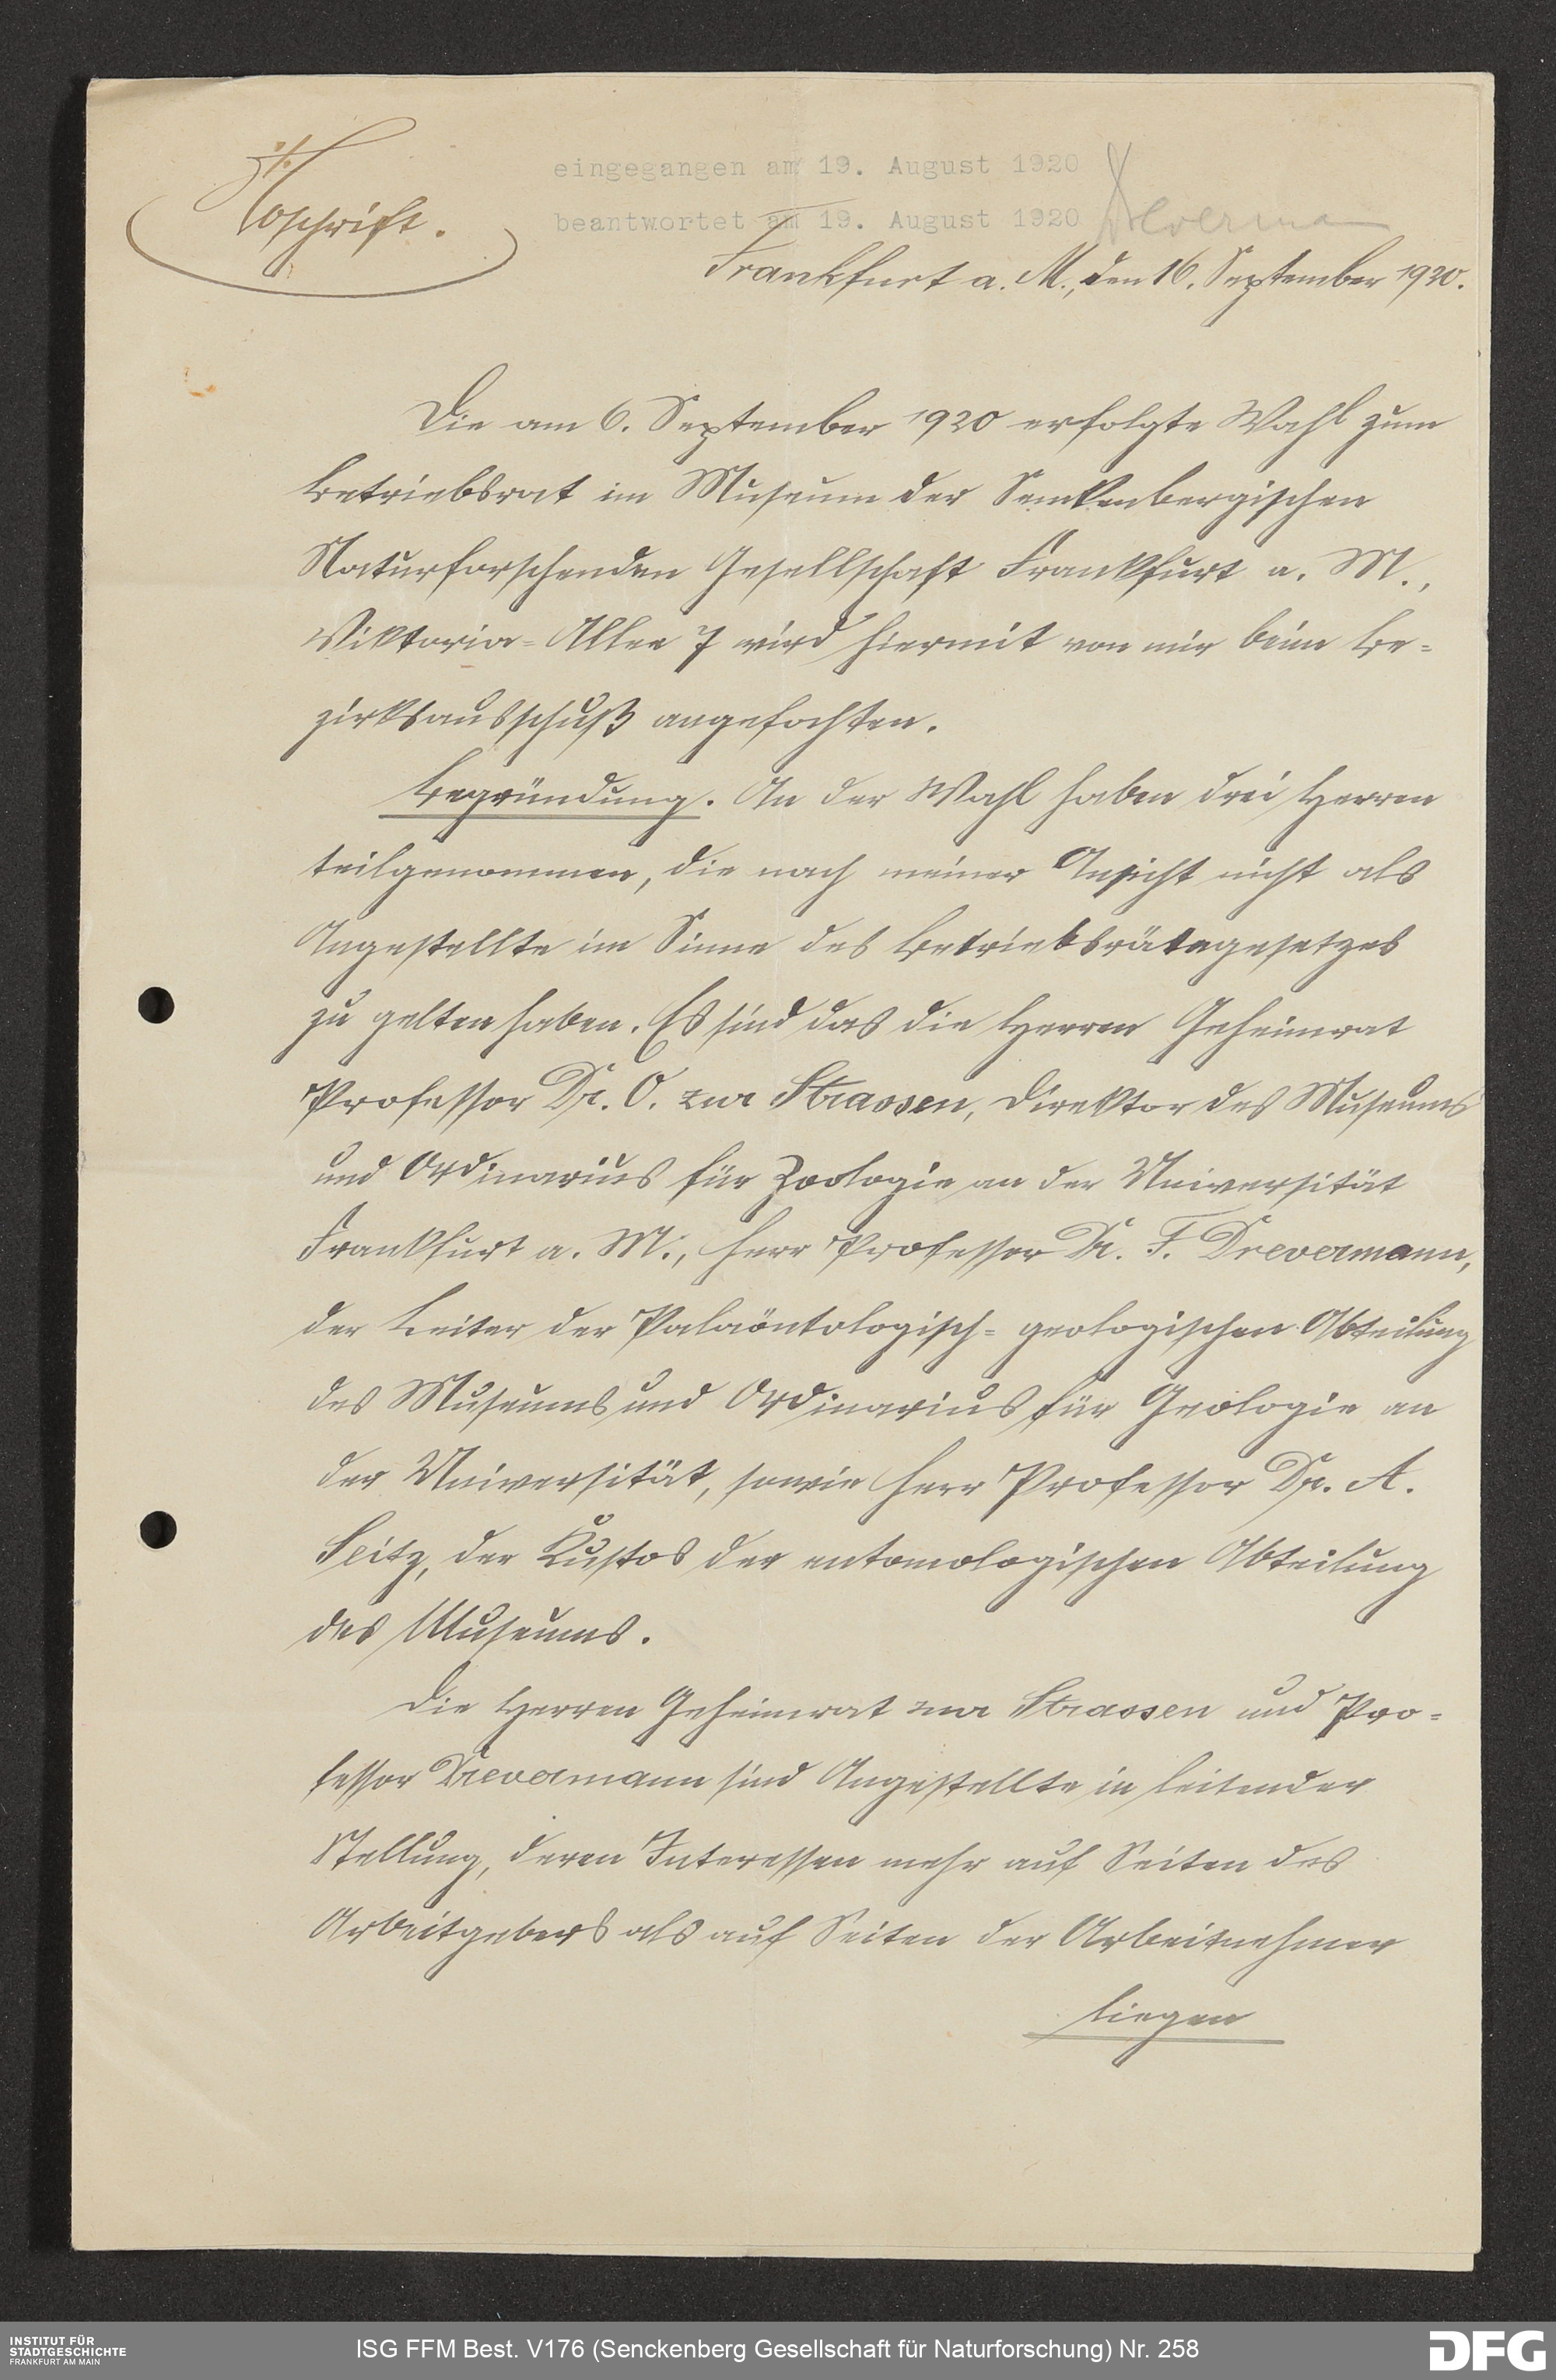 eingegangen am 19. August 1920
beantwortet am 19. August 1920
Abschrift.
Frankfurt a. M., den 16. September 1920.
Die am 6. September 1920 erfolgte Wahl zum
Betriebsrat im Museum der Senckenbergischen
Naturforschenden Gesellschaft Frankfurt a. M.,
Viktoria-Allee 7 wird hiermit von mir beim Be-
zirksausschuß angefochten.
Begründung. An der Wahl haben drei Herren
teilgenommen, die nach meiner Ansicht nicht als
Angestellte im Sinne des Betriebsrätegesetzes
zu gelten haben. Es sind das die Herren Geheimrat
Professor Dr. O. zur Strassen, Direktor des Museums
und Ordinarius für Zoologie an der Universität
Frankfurt a. M., Herr Professor Dr. F. Drevermann,
der Leiter der Paläontologisch-geologischen Abteilung
des Museums und Ordinarius für Geologie an
der Universität, sowie Herr Professor Dr. A.
Seitz, der Kustos der entomologischen Abteilung
des Museums.
Die Herren Geheimrat zur Strassen und Pro-
fessor Drevermann sind Angestellte in leitender
Stellung, deren Interessen mehr auf Seiten des
Arbeitgebers als auf Seiten der Arbeitnehmer
liegen
INSTITUT FÜR
STADTGESCHICHTE
FRANKFURT AM MAIN
ISG FFM Best. V176 (Senckenberg Gesellschaft für Naturforschung) Nr. 258
DFG